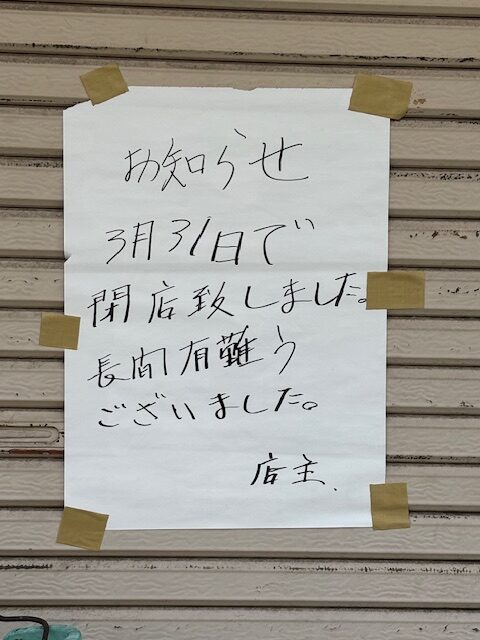 お知らせ
3月31日で
閉店致しました。
長間有難う
ございました。
店主、